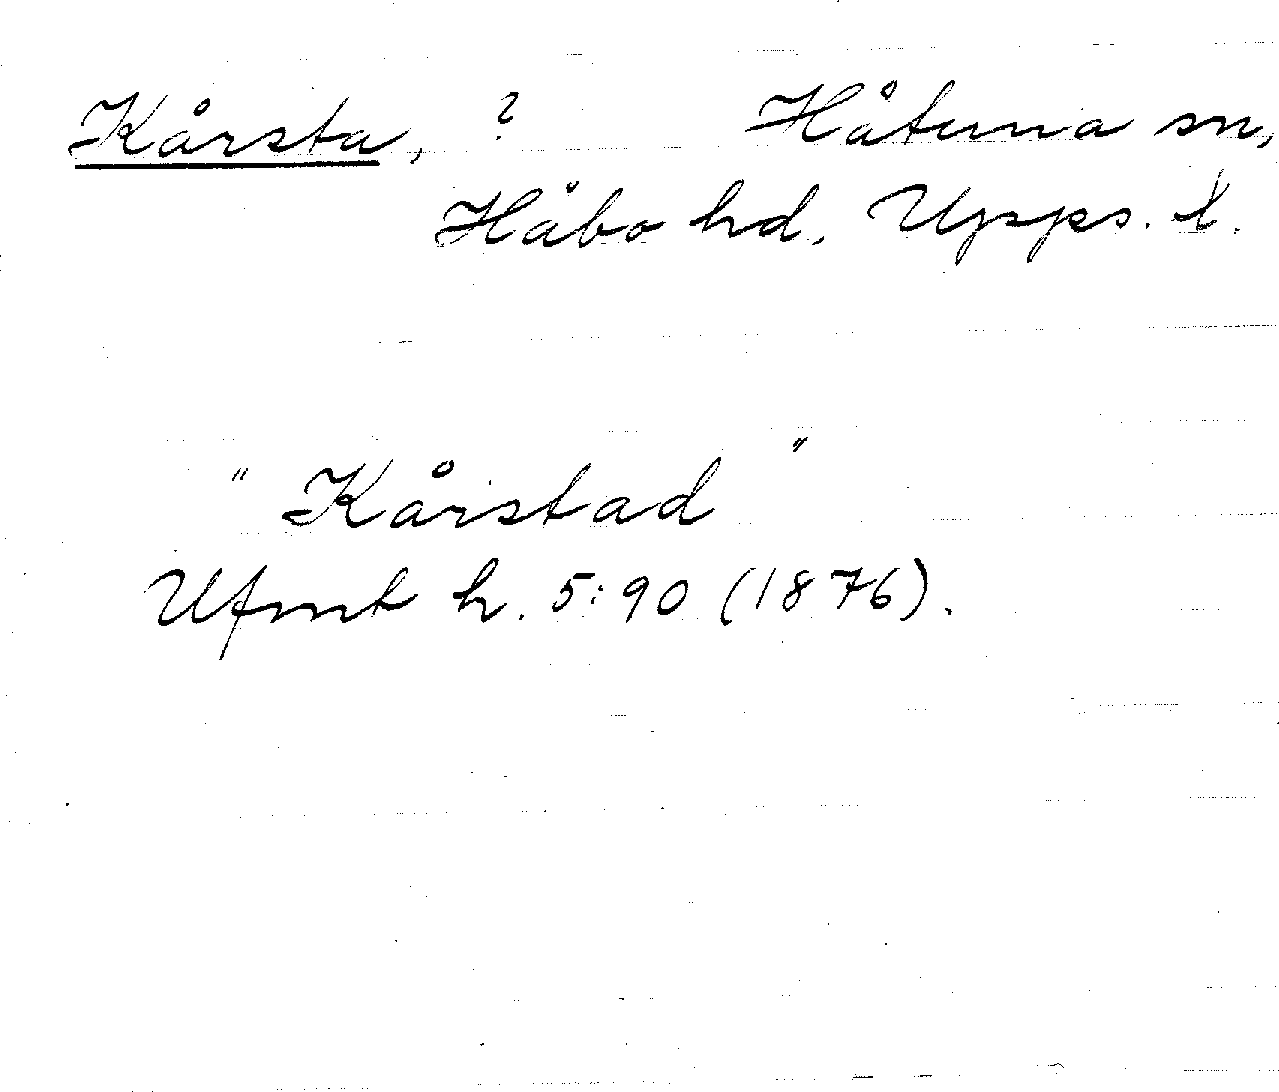 Kårsta, ? Håtuna sn,
Håbo hd, Upps. l.
"Kårstad"
Ufmt h. 5:90 (1876).